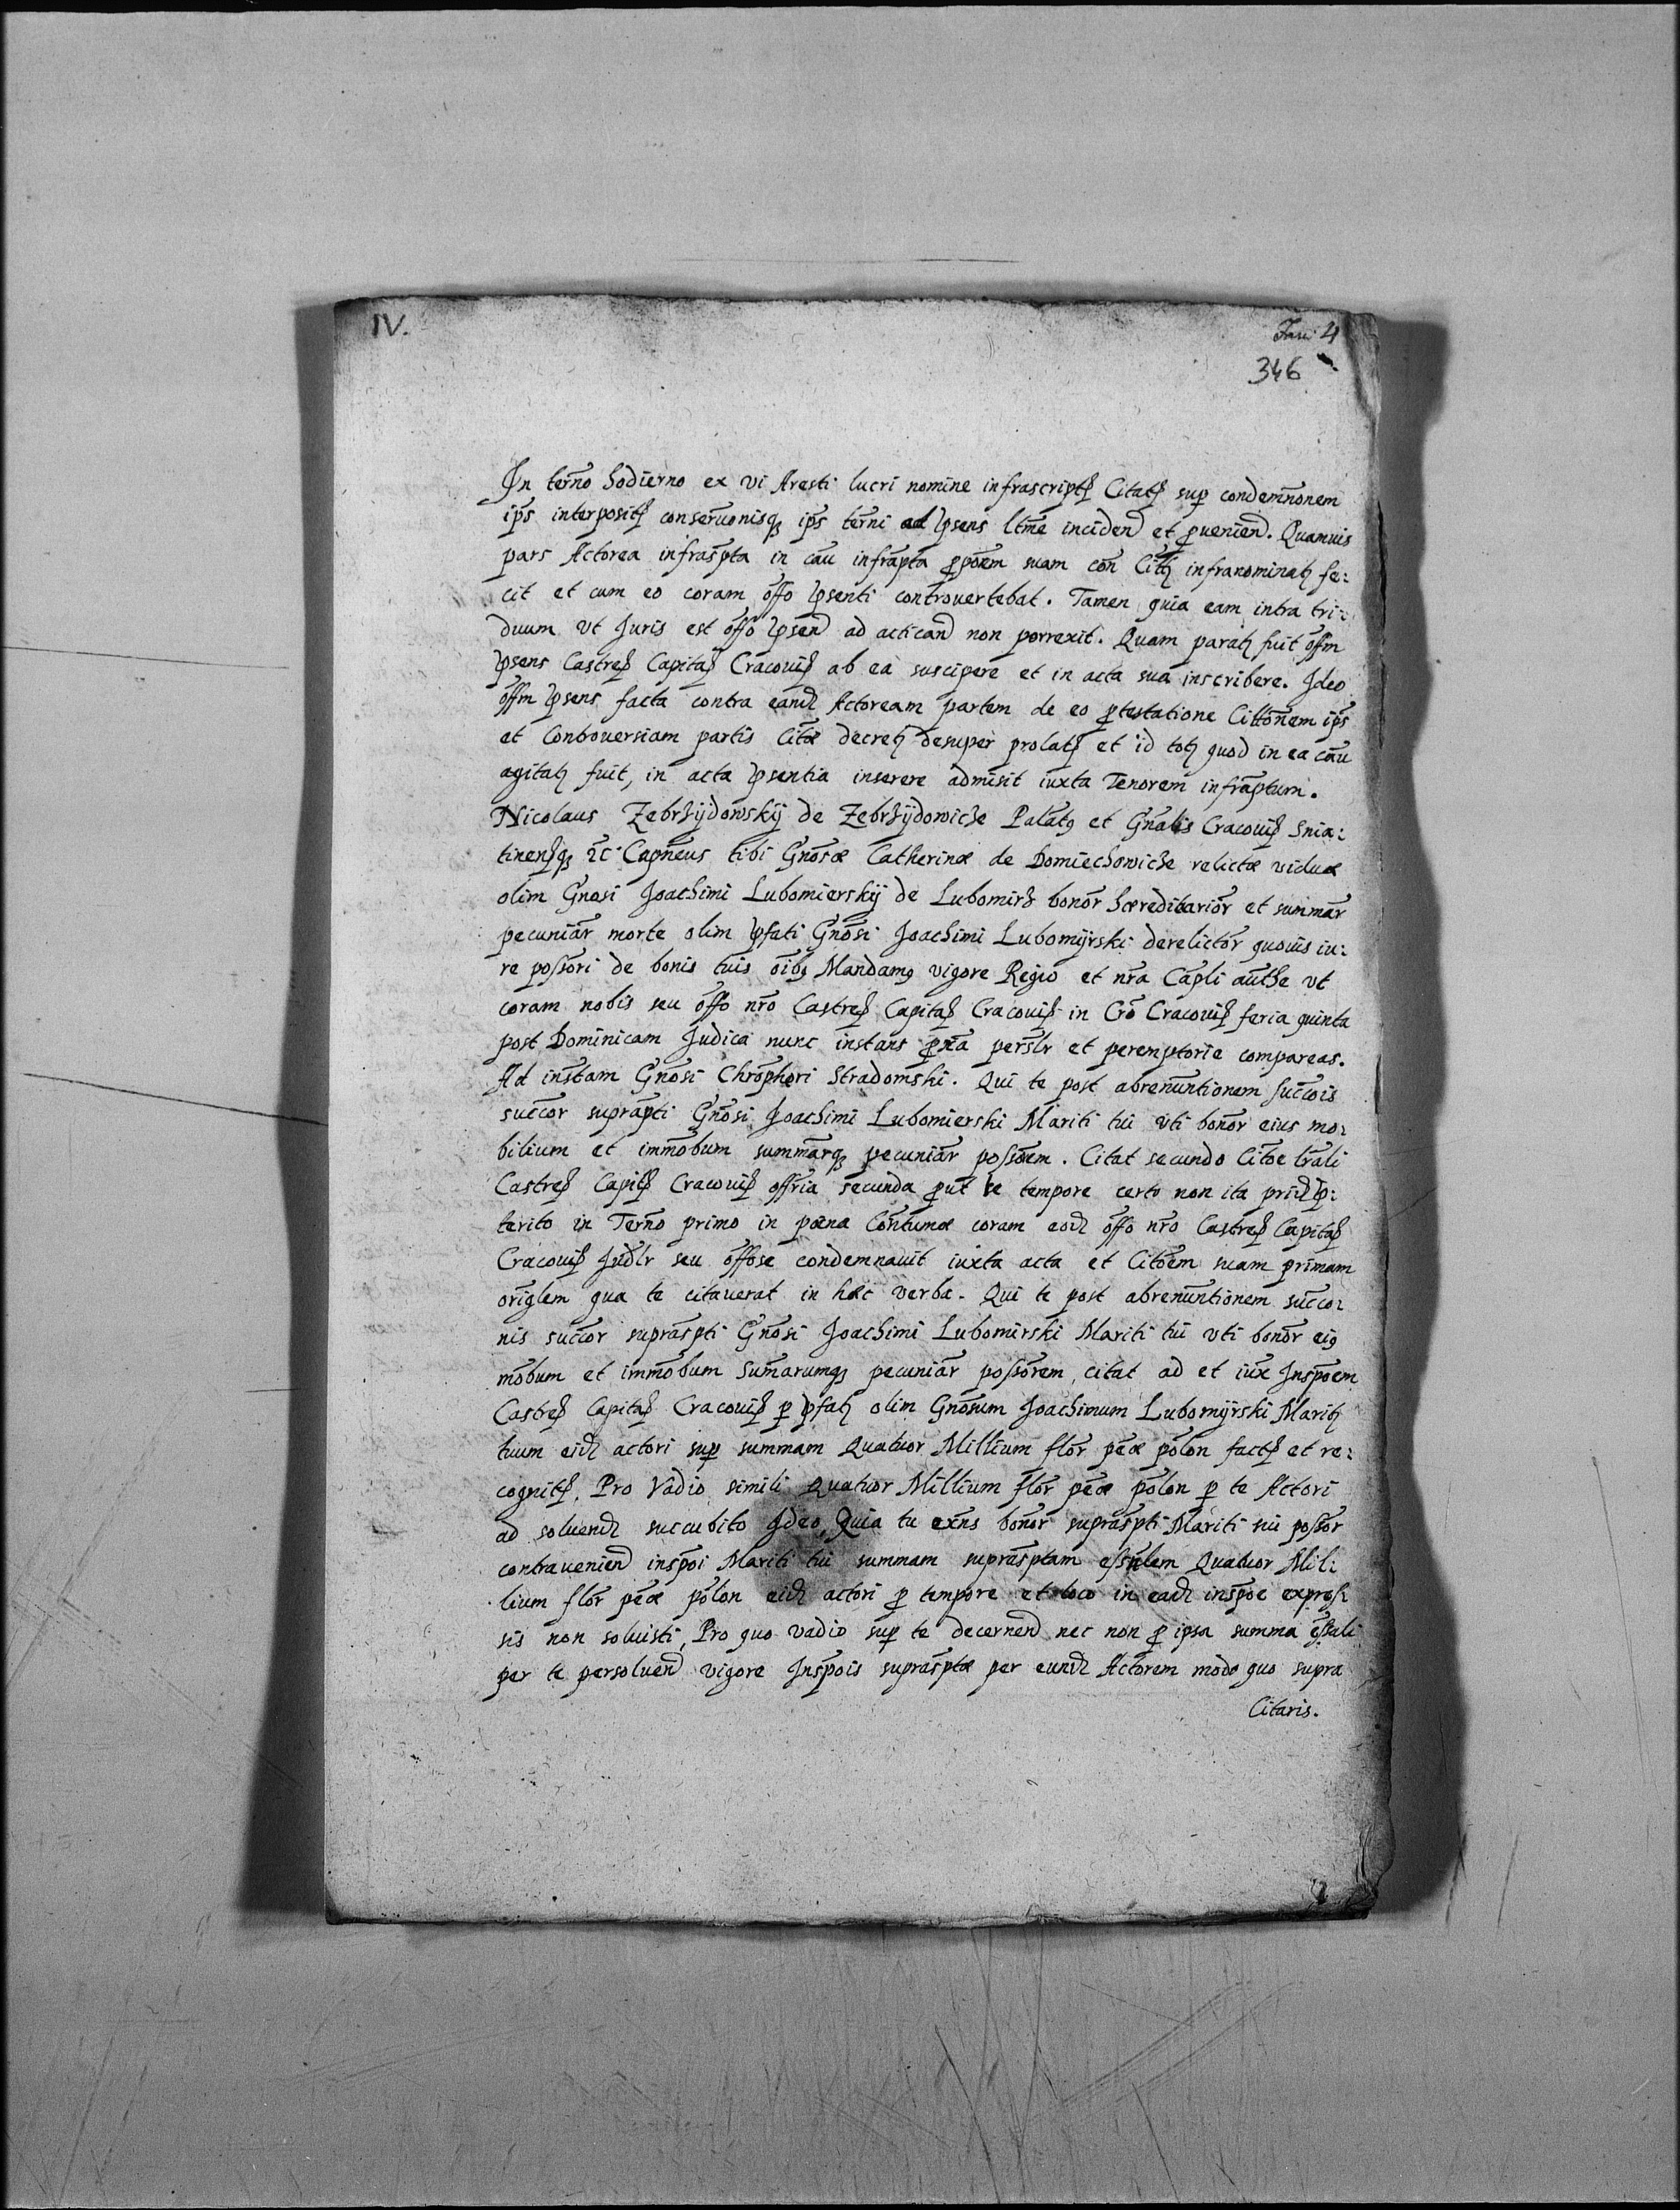 IV.
Fasc: 4
346
In termo hodierno ex vi Aresti lucri nomine infrascripti Citati sup condemnonem
ips interpositi conseruonisq ips terni ad psens ltme inciden et pueniend. Quamuis
pars Actorea infraspta in cau infrapta ppoem suam con Citt infranominat fe:
cit et cum eo coram offo psenti controuertebat. Tamen quia eam intra tri:
duum vt Juris est offo psend ad acticand non porrexit. Quam parat fuit offm
psens Castren Capitan Cracouien ab ea suscipere et in acta sua inscribere. Ideo
offm psens facta contra eand Actoream partem de eo ptestatione Cittonem ips
et Controuersiam partis Citae decret desuper prolat et id tot quod in ea cau
agitat fuit, in acta psentia inserere admisit iuxta Tenorem infraptum.
Nicolaus Zebrzÿdowskÿ de Zebrzÿdowicze Palatg et Gnalis Cracouien Snia:
tinensq &c Capneus tibi Gnosae Catherinae de Domiechowicze relictae viduae
olim Gnosi Joachimi Lubomierskÿ de Lubomirz bonor haereditarior et summar
pecuniar morte olim pfati Gnosi Joachimi Lubomÿrski derelictor quouis iu:
re possori de bonis tuis oibg Mandamg vigore Regio et nra Capli authe vt
coram nobis seu offo nro Castren Capitan Cracouien in Cro Cracouien feria quinta
post Dominicam Judica nunc instans pxia perslr et peremptorie compareas.
Ad instam Gnosi Chrophori Stradomski. Qui te post abrenuntionem succois
succor suprapti Gnosi Joachimi Lubomierski Mariti tui vti bonor eius mo:
bilium et immobum summarq pecuniar possorem. Citat secundo Citoe trali
Castren Capitan Cracouien offria secunda put te tempore certo non ita prid p:
terito in Terno primo in poena Contumae coram eod offo nro Castren Capitan
Cracouien Judlr seu offose condemnauit iuxta acta et Citoem suam primam
origlem qua te citauerat in haec verba. Qui te post abrenuntionem succo:
nis succor supraspti Gnosi Joachimi Lubomirski Mariti tui vti bonor eig
mobum et immobum Sumarumq pecuniar possorem, citat ad et iux Inspoem
Castren Capitan Cracouien p pfat olim Gnosum Joachimum Lubomÿrski Marit
tuum eid actori sup summam Quatuor Millium flor peae polon fact et re:
cognit. Pro Vadio simili Quatuor Millium flor peae polon p te Actori
ad soluend succubito Ideo, Quia tu exns bonor supraspti Mariti sui possor
contraueniend inspoi Mariti tui summam supraspam essntlem Quatuor Mil:
lium flor peae polon eid actori p tempore et loco in ead inspoe expres:
sis non soluisti, Pro quo vadio sup te decernend nec non p ipsa summa essali
per te persoluend vigore Inspois suprasptae per eund Actorem modo quo supra
Citaris.